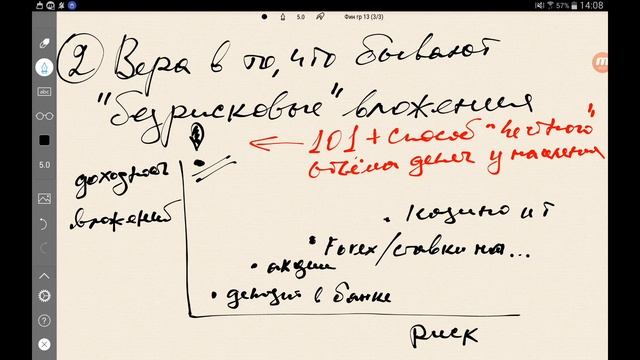 5.0 Фин гр 13 (3/3) 57% 14:08
② Вера в то, что бывают
"безрисковые" вложения
101 + способ "честного"
отъёма денег у населения
доходность
вложений
казино и т
Forex/ставки на...
акции
депозит в банке
риск
abc
5.0